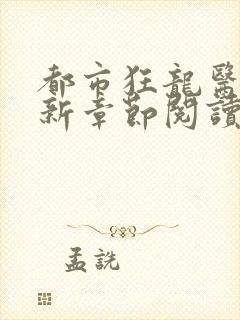 都市狂龍醫
新章節閱讀
孟詵